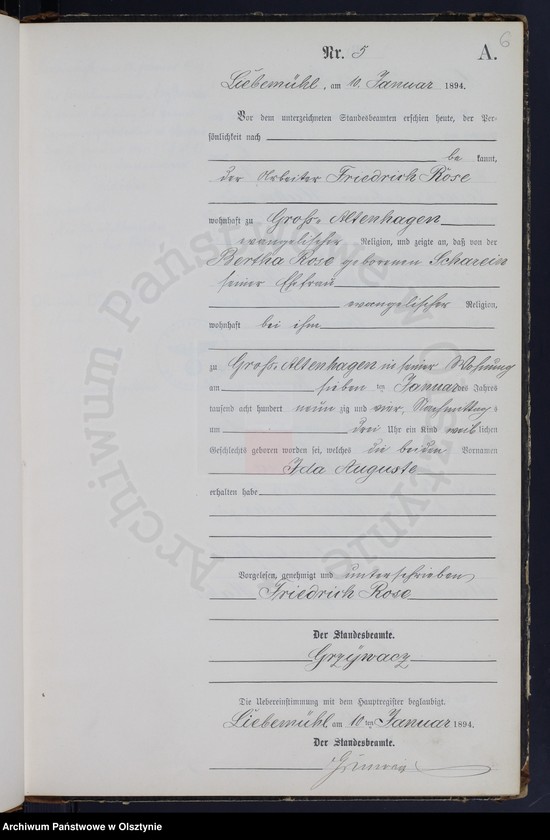 6
Nr. 5 A.
Liebemühl, am 10. Januar 1894.
Vor dem unterzeichneten Standesbeamten erschien heute, der Per-
sönlichkeit nach
be kannt,
der Arbeiter Friedrich Rose
wohnhaft zu Groß-Altenhagen
evangelischer Religion, und zeigte an, daß von der
Bertha Rose geborenen Scharein
seiner Ehefrau
evangelischer Religion,
wohnhaft bei ihm
zu Groß-Altenhagen in seiner Wohnung
am sieben ten Januar des Jahres
tausend acht hundert neun zig und vier, Nachmittag s
um drei Uhr ein Kind weib lichen
Geschlechts geboren worden sei, welches die beiden Vornamen
Ida Auguste
erhalten habe
Vorgelesen, genehmigt und unterschrieben
Friedrich Rose
Der Standesbeamte.
Grzywacz
Die Uebereinstimmung mit dem Hauptregister beglaubigt.
Liebemühl am 10 ten Januar 1894.
Der Standesbeamte.
Archiwum Państwowe w Olsztynie
Archiwum Państwowe w Olsztynie